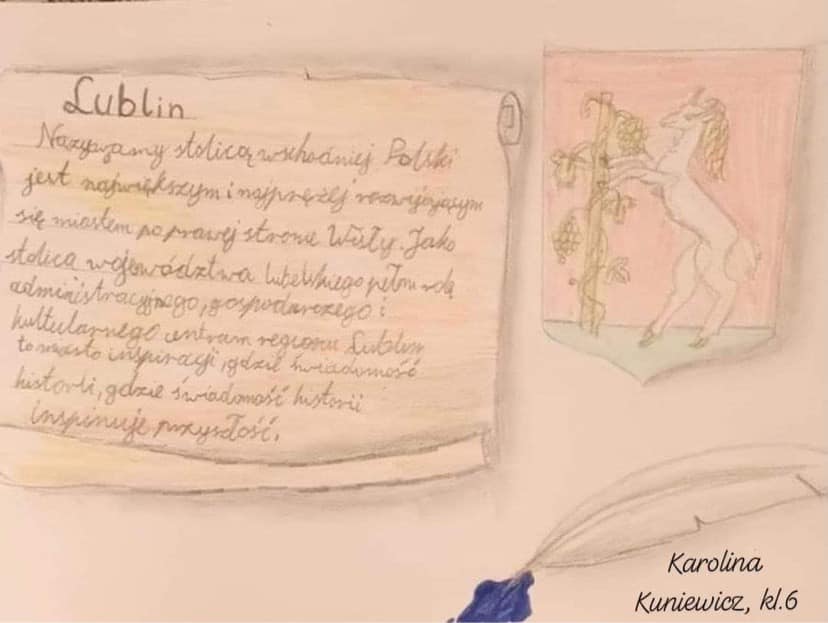 Lublin
Nazywamy stolicą wschodniej Polski
jest największym i najprężej rozwijającym
się miastem po prawej stronie Wisły. Jako
stolica województwa lubelskiego pełni rolę
administracyjnego, gospodarczego i
kultularnego centram regionu Lublin
to miasto inspiracji, gdzie świadomość
historii, gdzie świadomość historii
inspiruje przyszłość.
Karolina
Kuniewicz, kl.6